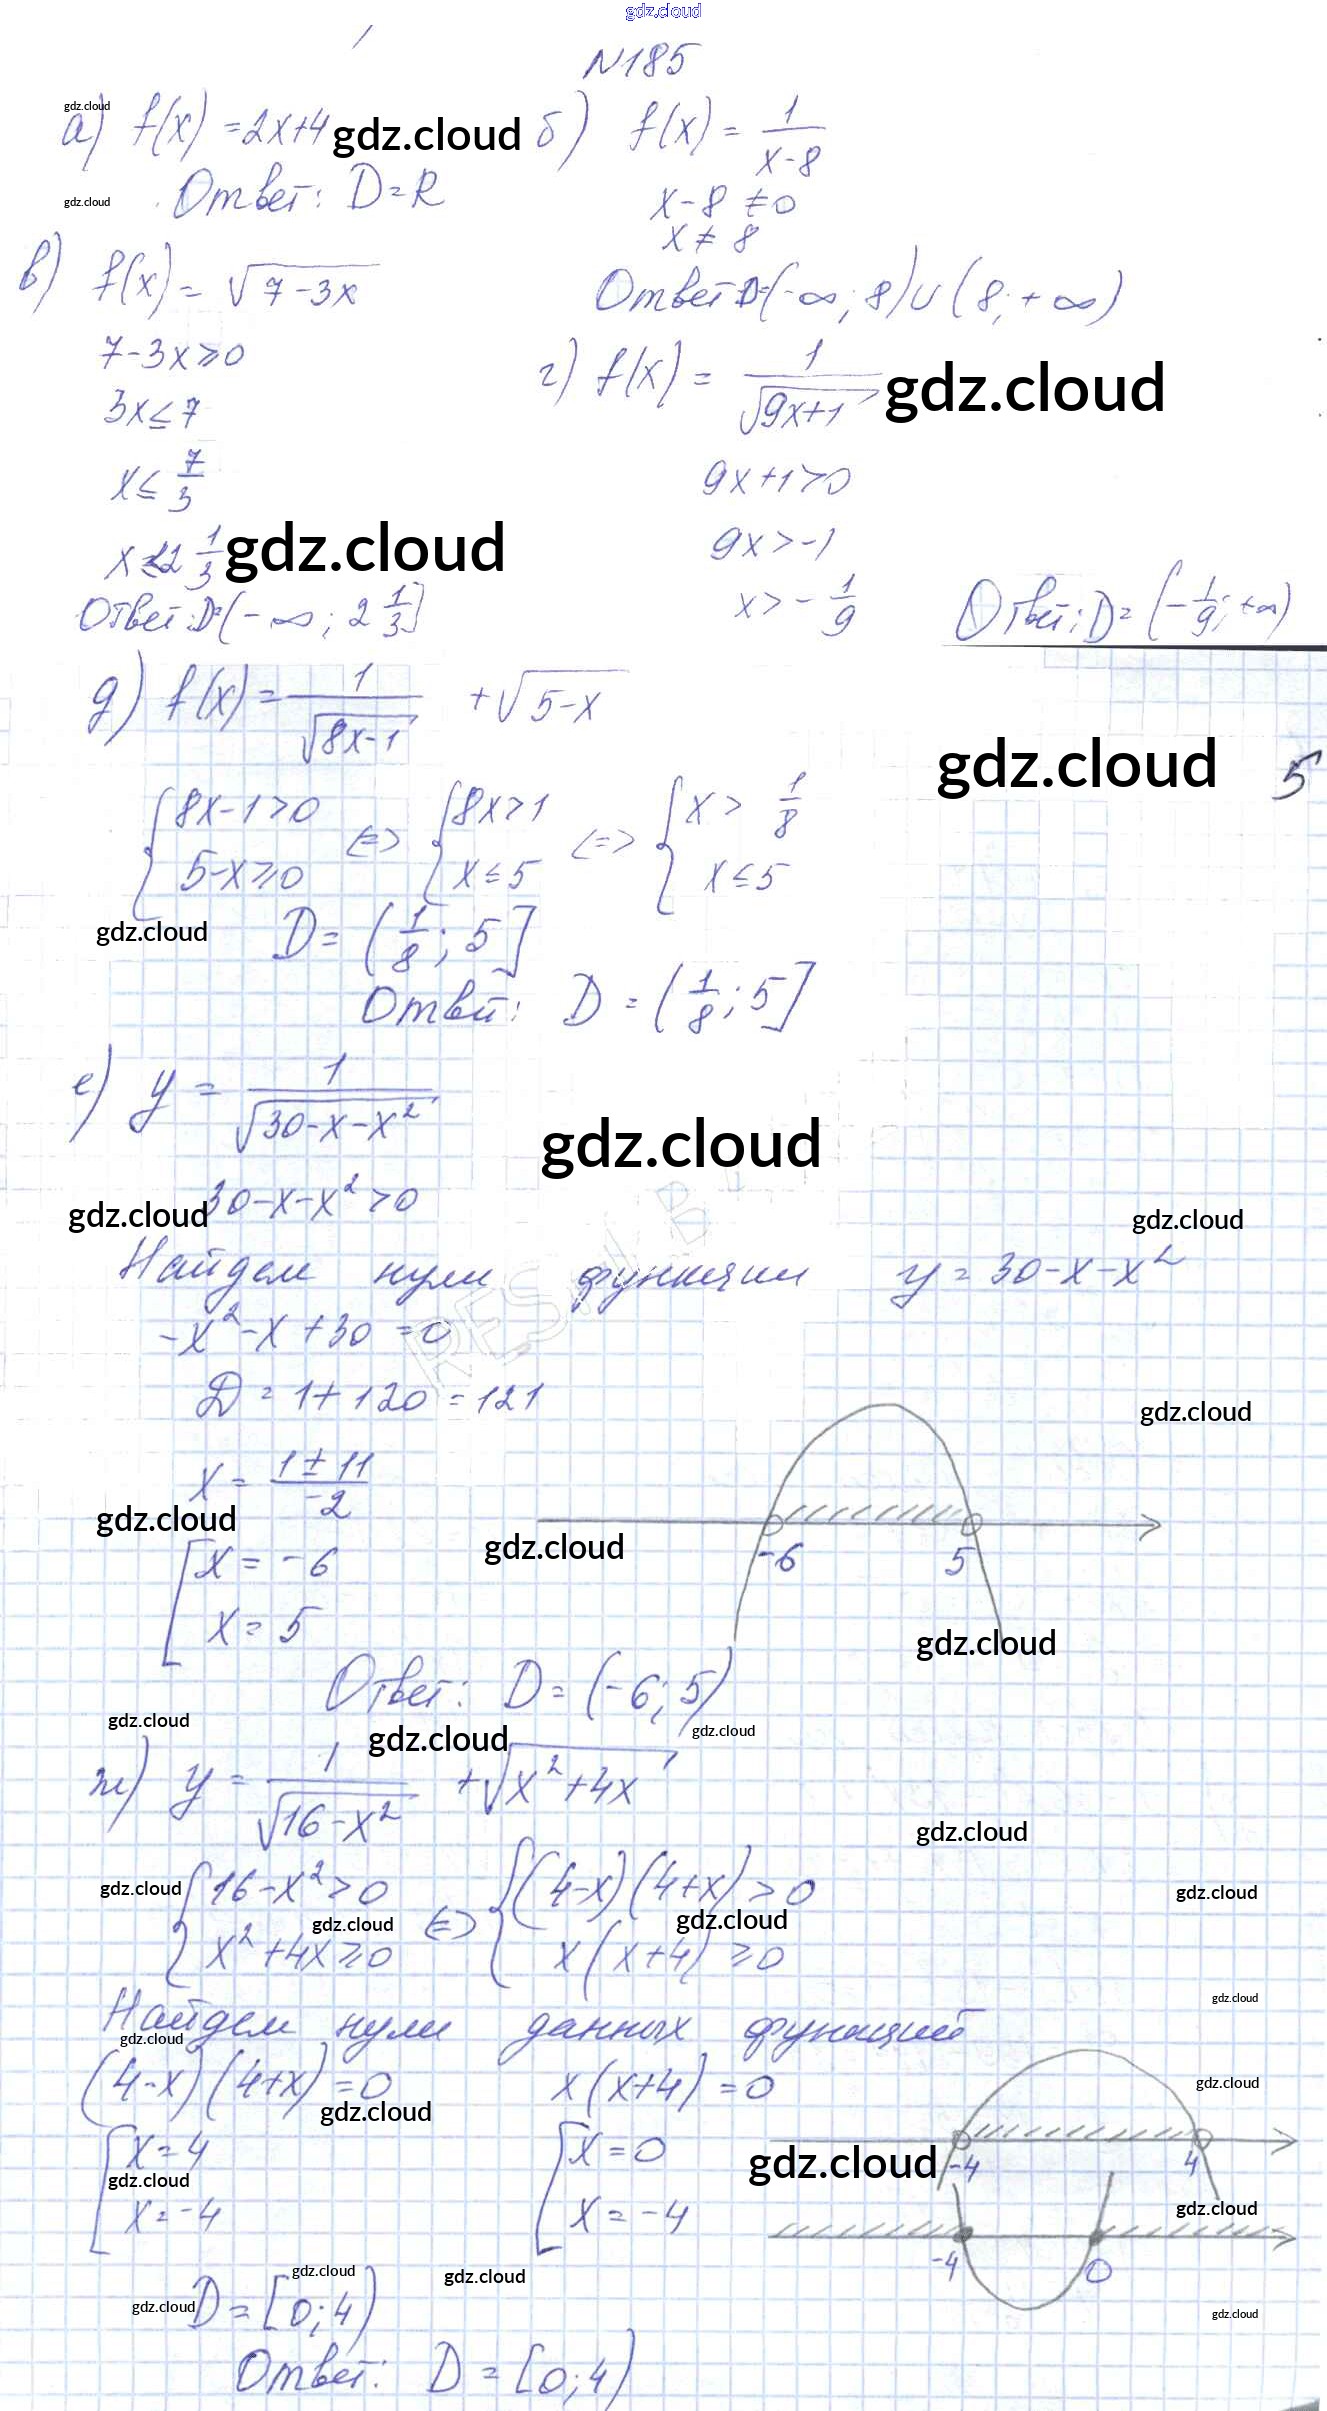 gdz.cloud
N185
а) f(x) = 2x+4 gdz.cloud б) f(x) = 1/(x-8)
gdz.cloud
gdz.cloud Ответ: D=R
x-8 ≠ 0
x ≠ 8
Ответ D=(-∞; 8)∪(8; +∞)
в) f(x) = √(7-3x)
7-3x ⩾ 0
3x ≤ 7
x ≤ 7/3
x ≤ 2 1/3 gdz.cloud
Ответ: D=(-∞; 2 1/3]
г) f(x) = 1/√(9x+1) gdz.cloud
9x+1>0
9x>-1
x > -1/9
Ответ: D= (-1/9; +∞)
д) f(x) = 1/√(8x-1) + √(5-x)
gdz.cloud 5
{8x-1>0 <=> {8x>1 <=> {x > 1/8
5-x⩾0 x≤5 x≤5
gdz.cloud D= (1/8; 5]
Ответ: D = (1/8; 5]
е) y = 1/√(30-x-x²)
gdz.cloud
gdz.cloud 30-x-x²>0 gdz.cloud
Найдем нули функции y = 30-x-x²
-x²-x+30=0
D = 1+120 = 121
gdz.cloud
x = (1±11)/-2
gdz.cloud gdz.cloud
[x = -6
x = 5
-6 5
gdz.cloud
Ответ: D = (-6; 5)
gdz.cloud gdz.cloud gdz.cloud
ж) y = 1/√(16-x²) + √(x²+4x)
gdz.cloud
{16-x²>0 <=> {(4-x)(4+x)>0
x²+4x⩾0 x(x+4)⩾0
gdz.cloud gdz.cloud gdz.cloud gdz.cloud
gdz.cloud
Найдем нули данных функций
gdz.cloud
(4-x)(4+x)=0 x(x+4)=0
gdz.cloud gdz.cloud
[x=4 [x=0
x=-4 x=-4
gdz.cloud gdz.cloud gdz.cloud
-4 4
-4 0
gdz.cloud gdz.cloud
gdz.cloud D = [0; 4) gdz.cloud
Ответ: D = [0; 4)